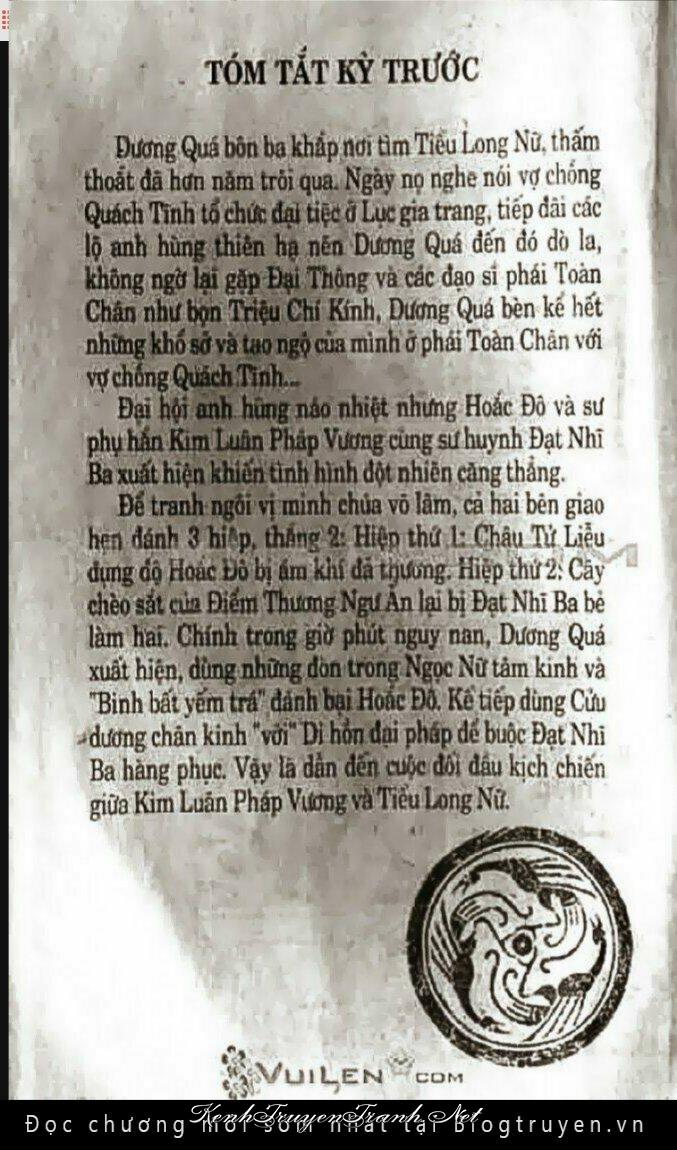 TÓM TẮT KỲ TRƯỚC
Dương Quá bôn ba khắp nơi tìm Tiểu Long Nữ, thấm
thoắt đã hơn năm trôi qua. Ngày nọ nghe nói vợ chồng
Quách Tĩnh tổ chức đại tiệc ở Lục gia trang, tiếp đãi các
lộ anh hùng thiên hạ nên Dương Quá đến đó dò la,
không ngờ lại gặp Đại Thông và các đạo sĩ phái Toàn
Chân như bọn Triệu Chí Kính, Dương Quá bèn kể hết
những khổ sở và tao ngộ của mình ở phái Toàn Chân với
vợ chồng Quách Tĩnh...
Đại hội anh hùng náo nhiệt nhưng Hoắc Đô và sư
phụ hắn Kim Luân Pháp Vương cùng sư huynh Đạt Nhĩ
Ba xuất hiện khiến tình hình đột nhiên căng thẳng.
Để tranh ngôi vị minh chủ võ lâm, cả hai bên giao
hẹn đánh 3 hiệp, thắng 2: Hiệp thứ 1: Châu Tử Liễu
đụng độ Hoắc Đô bị ám khí đả thương. Hiệp thứ 2: Cây
chèo sắt của Điểm Thương Ngư Ẩn lại bị Đạt Nhĩ Ba bẻ
làm hai. Chính trong giờ phút nguy nan, Dương Quá
xuất hiện, dùng những đòn trong Ngọc Nữ tâm kinh và
"Binh bất yếm trá" đánh bại Hoắc Đô. Kế tiếp dùng Cửu
dương chân kinh "với" Di hồn đại pháp để buộc Đạt Nhĩ
Ba hàng phục. Vậy là dẫn đến cuộc đối đầu kịch chiến
giữa Kim Luân Pháp Vương và Tiểu Long Nữ.
VUILEN COM
KenhTruyenTranh.Net
Đọc chương mới sớm nhất tại blogtruyen.vn